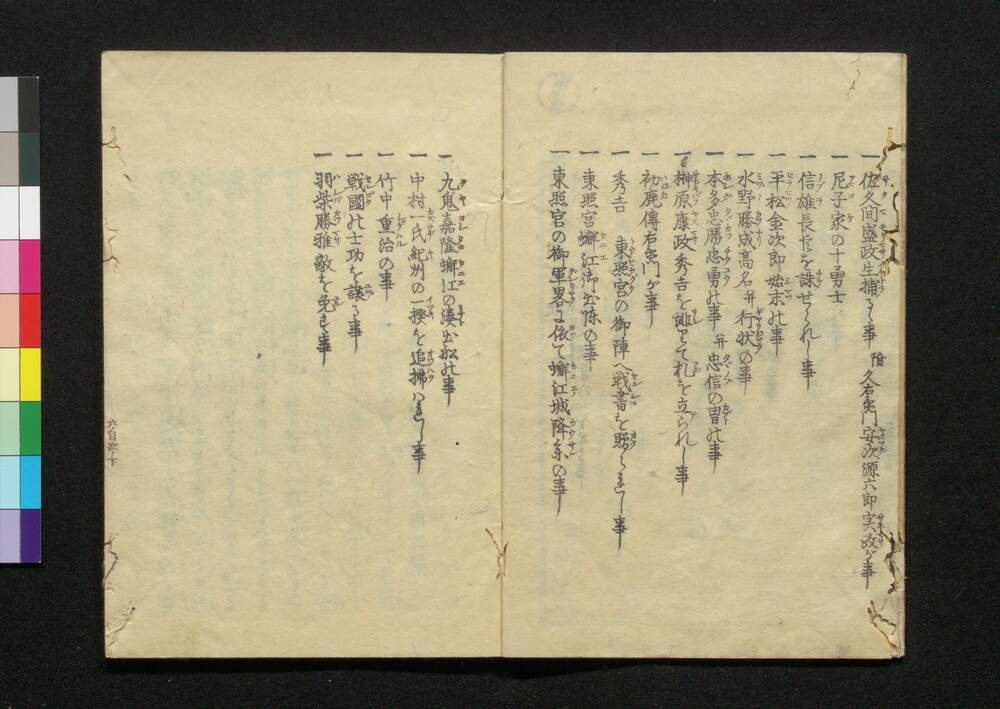 一 佐久間盛政生捕るゝ事 附 久右衛門安次源六郎実政が事
一 尼子家の十勇士
一 信雄長臣を誅せられし事
一 平松金次郎始末の事
一 水野勝成高名并行状の事
一 本多忠勝忠勇の事 并 忠信の冑の事
一 榊原康政秀吉を誹りて札を立られし事
一 初鹿傳右衛門が事
一 秀吉 東照宮の御陣へ戦書を贈られし事
一 東照宮蟹江御出陣の事
一 東照宮の御軍畧に依て蟹江城降参の事
一 九鬼嘉隆蟹江の湊出船の事
一 中村一氏紀州の一揆を追拂はれし事
一 竹中重治の事
一 戦國の士功を譲る事
一 羽柴勝雅敵を免す事
六目次ノ下